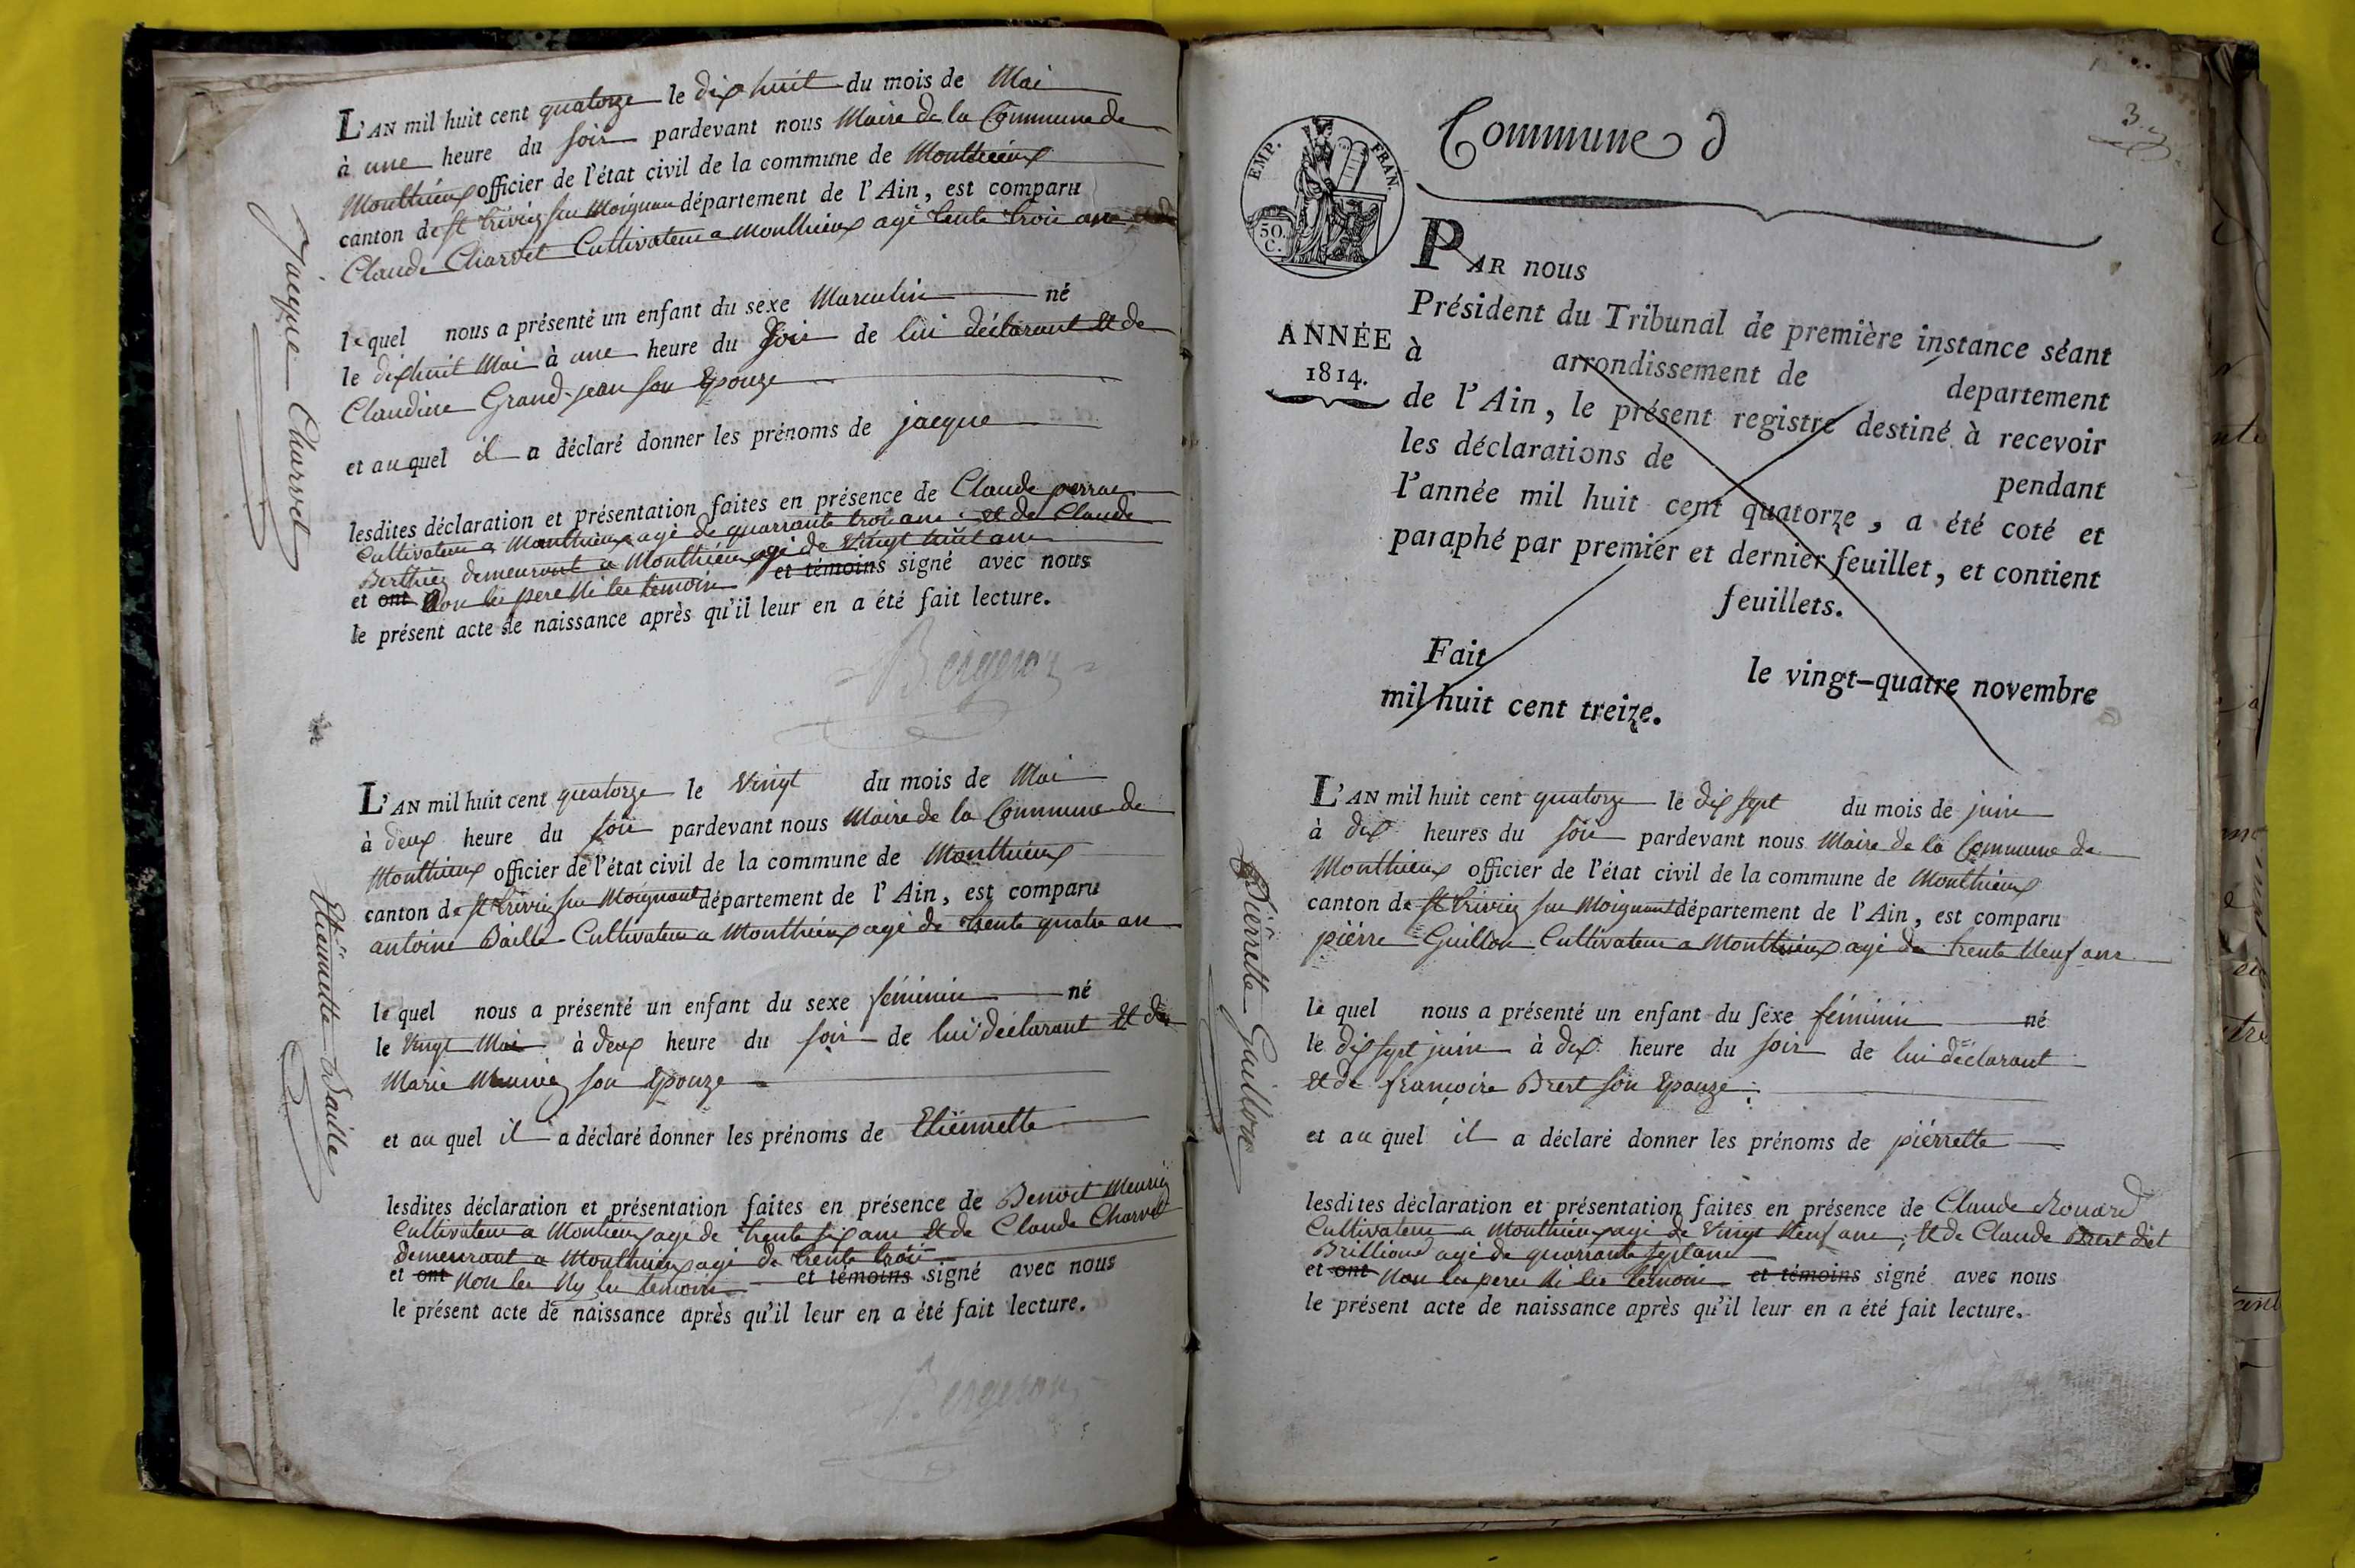 L'AN mil huit cent quatorze le dix huit du mois de Mai
à une heure du soir pardevant nous Maire de la Commune de
Monthieux officier de l'état civil de la commune de Monthieux
canton de st trivier sur Moignan département de l'Ain, est comparu
Claude Charvet Cultivateur a Monthieux agé trente trois ans
le quel nous a présenté un enfant du sexe Masculin né
le dixhuit Mai à une heure du soir de lui déclarant et de
Claudine Grand-jean son Epouze
et au quel il a déclaré donner les prénoms de jacque
lesdites déclaration et présentation faites en présence de Claude perraud
Cultivateur a Monthieux agé de quarrante trois ans et de Claude
Berthier demeurant a Monthieux agé de vingt huit ans
et ont Non les pere Ni les temoin et témoins signé avec nous
le présent acte de naissance après qu'il leur en a été fait lecture.
Bergeron
Jacque Charvet
L'AN mil huit cent quatorze le Vingt du mois de Mai
à deux heure du soir pardevant nous Maire de la Commune de
Monthieux officier de l'état civil de la commune de Monthieux
canton de st trivier sur Moignant département de l'Ain, est comparu
antoine Baille Cultivateur a Monthieux agé de trente quatre an
le quel nous a présenté un enfant du sexe féminin né
le Vingt Mai à deux heure du soir de lui déclarant et de
Marie Meunier son Epouze
et au quel il a déclaré donner les prénoms de Etiennette
lesdites déclaration et présentation faites en présence de Benoit Meunier
Cultivateur a Montieux agé de trente six ans et de Claude Charvet
demeurant a Monthieux agé de trente trois
et ont Non les Ny les temoins et témoins signé avec nous
le présent acte de naissance après qu'il leur en a été fait lecture.
Bergeron
Etiennette Baille
3.
Commune d
EMP. FRAN.
50.
C.
PAR nous
Président du Tribunal de première instance séant
à arrondissement de departement
de l'Ain, le présent registre destiné à recevoir
les déclarations de pendant
l'année mil huit cent quatorze, a été coté et
paraphé par premier et dernier feuillet, et contient
feuillets.
Fait le vingt-quatre novembre
mil huit cent treize.
ANNÉE
1814.
L'AN mil huit cent quatorze le dix sept du mois de juin
à dix heures du soir pardevant nous Maire de la Commune de
Monthieux officier de l'état civil de la commune de Monthieux
canton de st trivier sur Moignant département de l'Ain, est comparu
piérre Guillon Cultivateur a Monthieux agé de trente Neuf ans
le quel nous a présenté un enfant du sexe féminin né
le dix sept juin à dix heure du soir de lui déclarant
et de francoise Brest son Epouze
et au quel il a déclaré donner les prénoms de piérrette
lesdites déclaration et présentation faites en présence de Claude Rouard
Cultivateur a Monthieux agé de Vingt Neuf ans, et de Claude Brest dit
Brilliond agé de quarrante sept ans
et ont Non les peres Ni les témoin et témoins signé avec nous
le présent acte de naissance après qu'il leur en a été fait lecture.
Piérrette Guillon